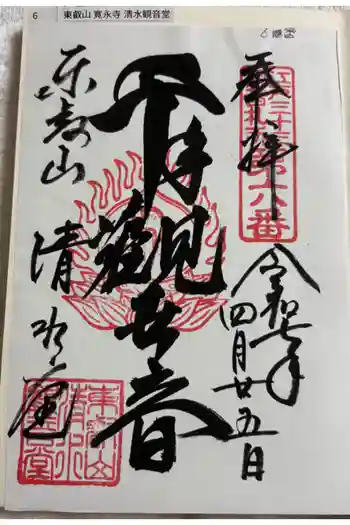 6 東叡山 寛永寺 清水観音堂
奉拝
第六番
令和七年
四月廿五日
千手観世音
東叡山
清水堂
東叡山
清水
観音堂